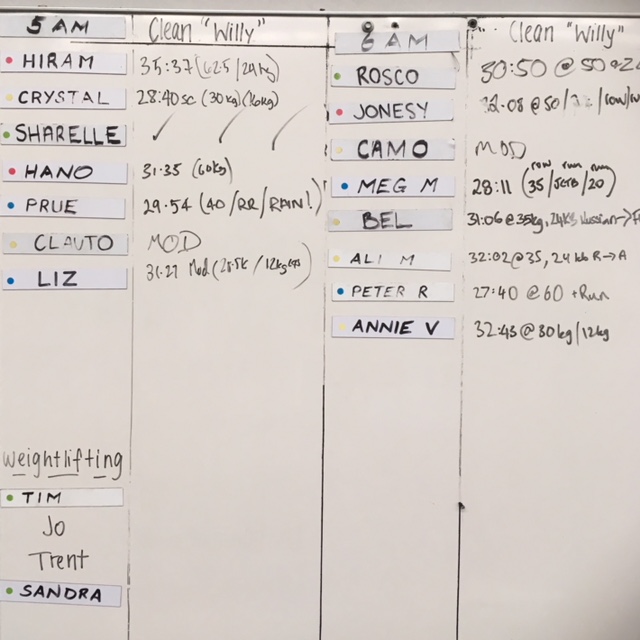 5 AM Clean "Willy"
HIRAM 35:37 (62.5/24kg)
CRYSTAL 28:40 sc (30kg) (16kg)
SHARELLE ✓ ✓ ✓
HANO 31:35 (60kg)
PRUE 29.54 (40/RR/RAIN!)
CLAUTO MOD
LIZ 31-27 Mod
weightlifting
TIM
Jo
Trent
SANDRA
8 AM Clean "Willy"
ROSCO 30:50 @ 50
JONESY @ 50/
CAMO MOD
row run run
MEG M 28:11 (35/zero/20)
BEL 31:06 @ 35kg, 24kg Russian →
ALI M 32:02 @ 35, 24 kb R→A
PETER R 27:40 @ 60 + Run
ANNIE V 32:43 @ 30kg/12kg